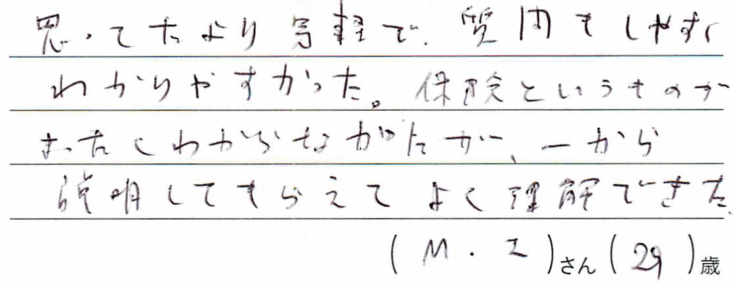 思ってたより気軽で、質問もしやすく
わかりやすかった。保険というものが
まったくわからなかったが、一から
説明してもらえてよく理解できた
(M.I)さん(29)歳